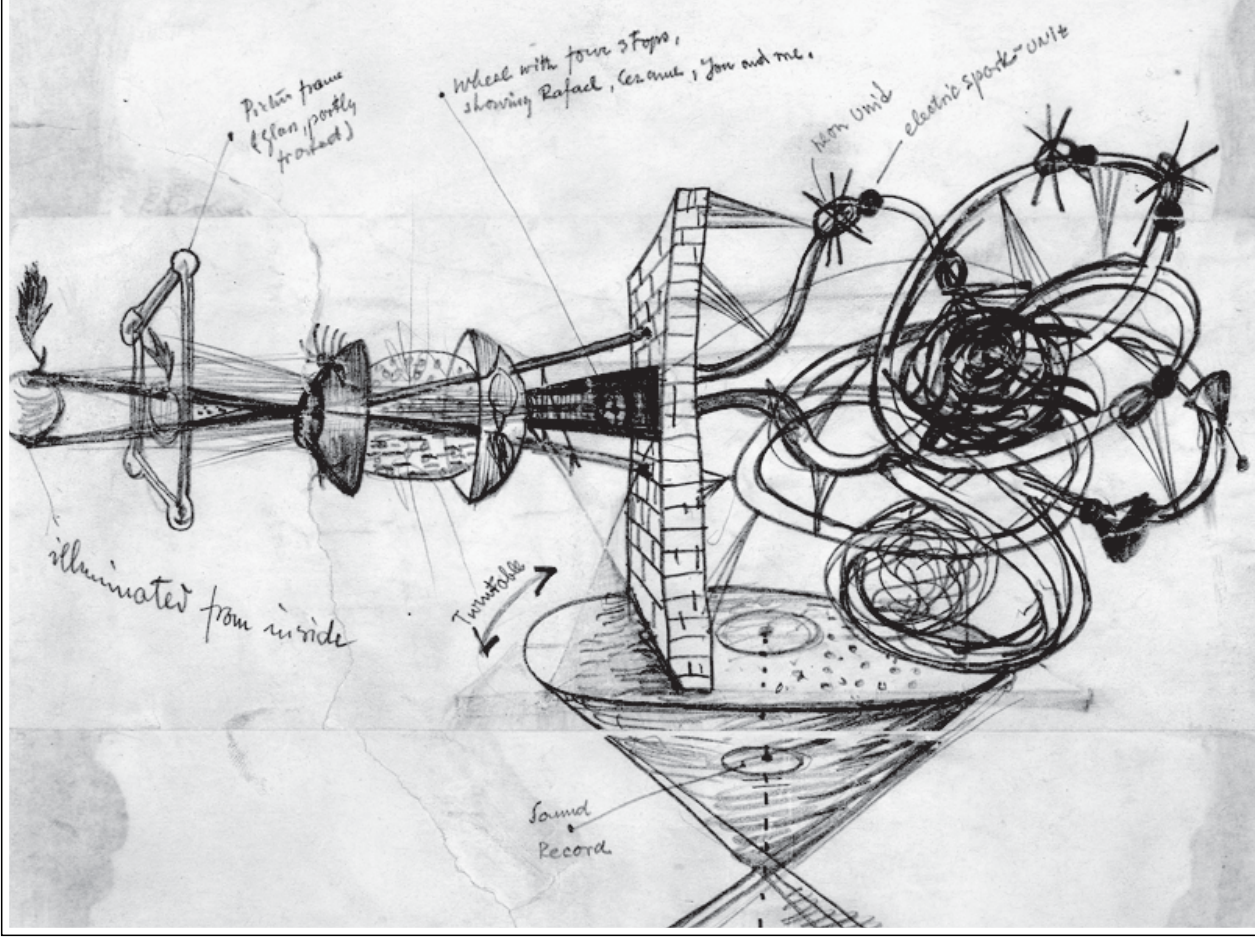 Picture frame
(glass, partly
frosted)
Wheel with four stops,
showing Rafael, Cezanne, you and me.
neon unit
electric spark-unit
illuminated from inside
Turntable
Sound
Record